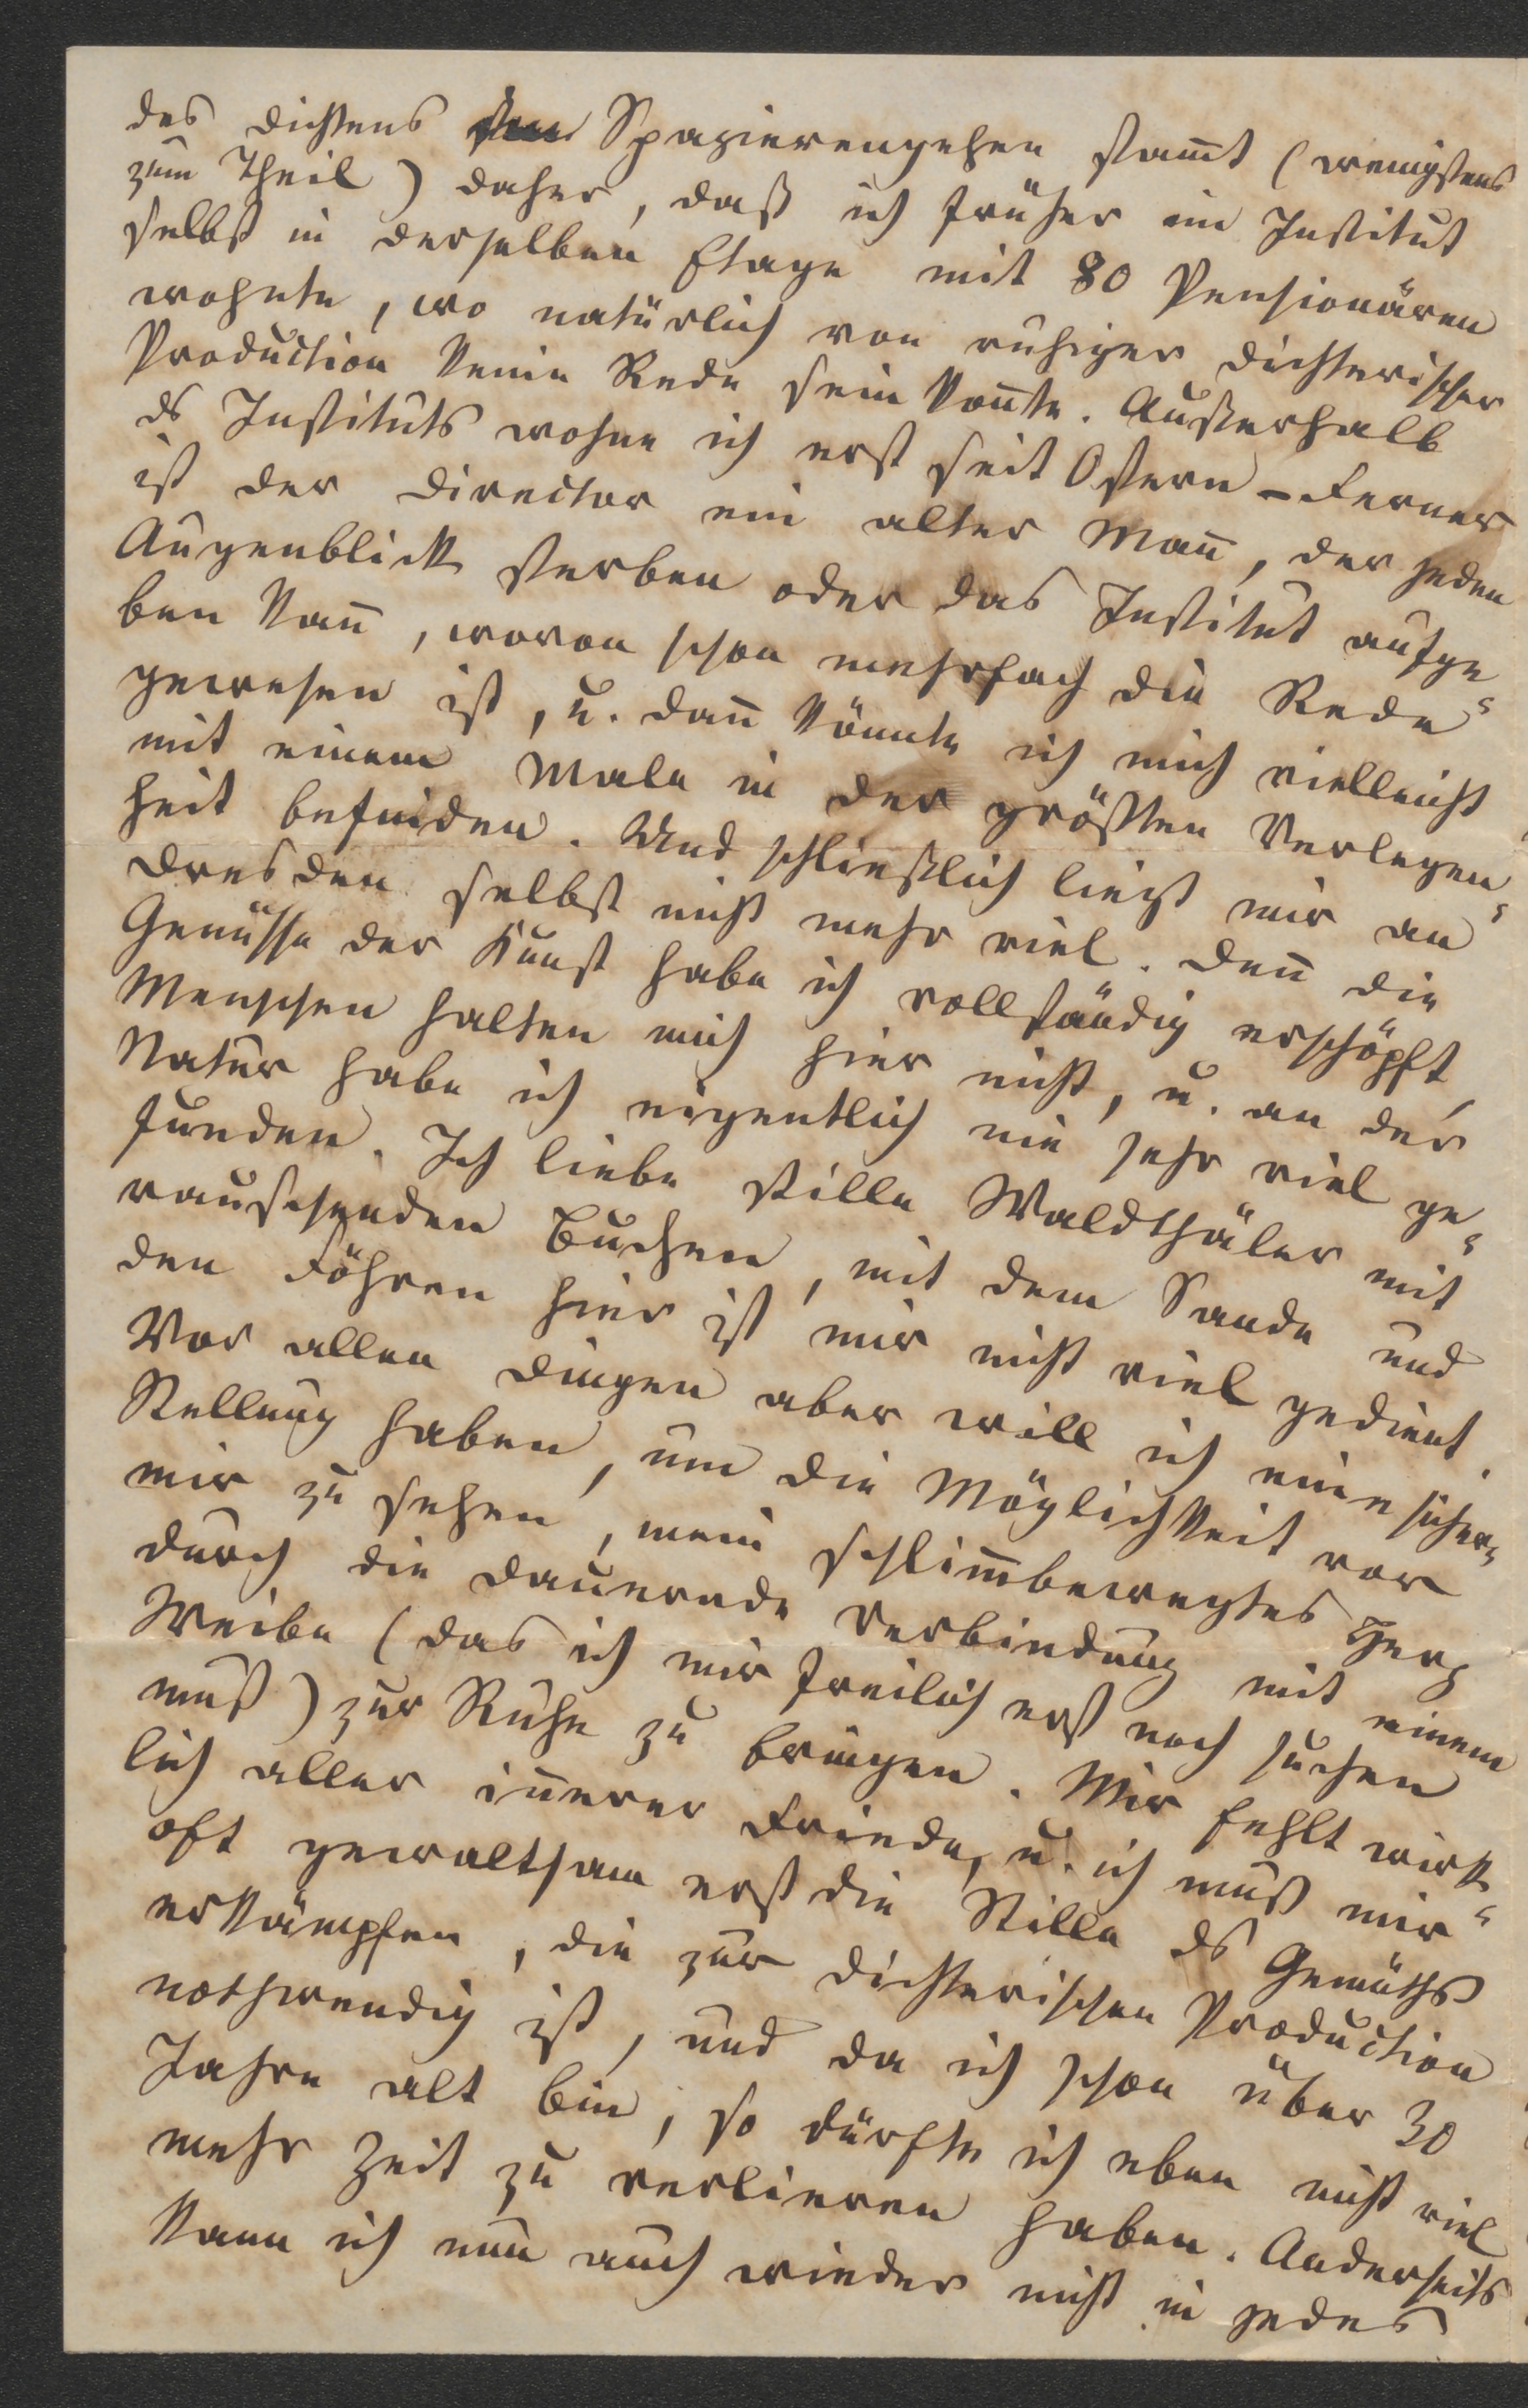 des Dichtens Spazierengehen stam̄t (wenigstens
zum Theil) daher, daß ich früher im Institut
selbst in derselben Etage mit 80 Pensionären
wohnte, wo natürlich von ruhiger dichterischer
Production keine Rede sein kon̄te. Außerhalb
ds Instituts wohne ich erst seit Ostern – Ferner
ist der Director ein alter Man̄, der jeden
Augenblick sterben oder das Institut aufge-
ben kan̄, wovon schon mehrfach die Rede
gewesen ist, u. dan̄ könnte ich mich vielleicht
mit einem Male in der größten Verlegen-
heit befinden. Und schließlich liegt mir an
Dresden selbst nicht mehr viel. Den̄ die
Genüsse der Kunst habe ich vollständig erschöpft,
Menschen halten mich hier nicht, u. an der
Natur habe ich eigentlich nie sehr viel ge-
funden. Ich liebe stille Waldthäler mit
rauschenden Buchen, mit dem Sande und
den Föhren hier ist mir nicht viel gedient.
Vor allen Dingen aber will ich eine sichere
Stellung haben, um die Möglichkeit vor
mir zu sehen, mein schlim̄bewegtes Herz
durch die dauernde Verbindung mit einem
Weibe (das ich mir freilich erst noch suchen
muß) zur Ruhe zu bringen. Mir fehlt wirk-
lich aller in̄erer Friede, u. ich muß mir
oft gewaltsam erst die Stille ds Gemüths
erkämpfen, die zur dichterischen Production
nothwendig ist, und da ich schon über 30
Jahre alt bin, so dürfte ich eben nicht viel
mehr Zeit zu verlieren haben. Anderseits
kann ich nun auch wieder nicht in jedes